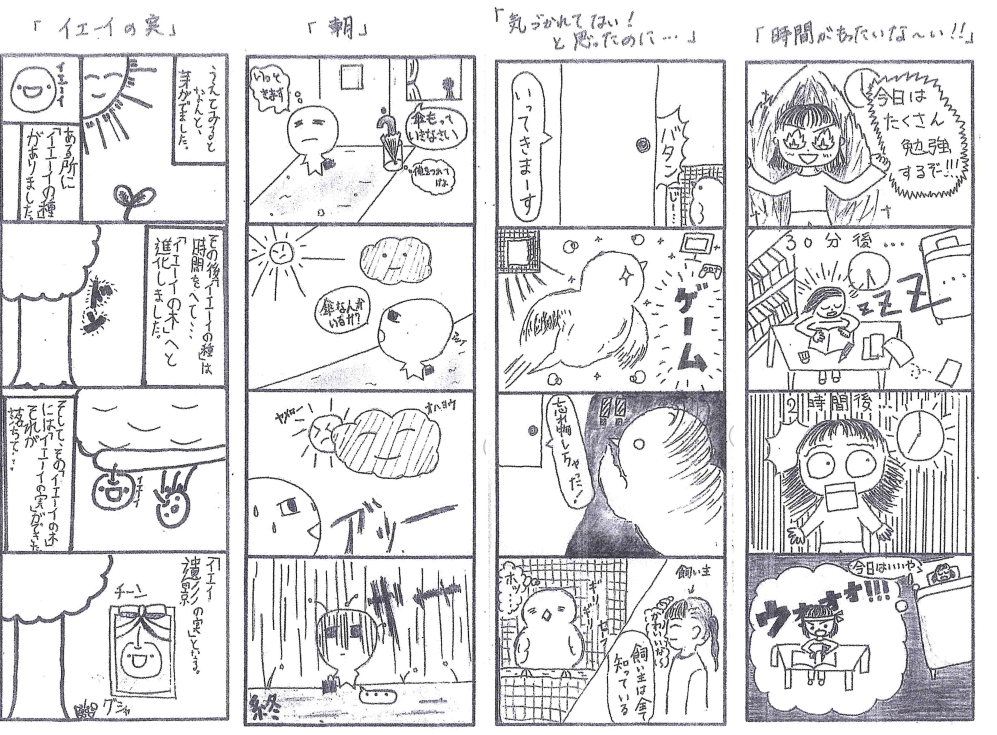 「イエーイの実」
イエーイ
ある所に
「イエーイの種」
がありました。
うえてみると
なんと、
芽がでました。
その後「イエーイの種」は
時間をへて・・・
「イエーイの木」へと
進化しました。
ドン
そして、その「イエーイの木」
には「イエーイの実」ができた
それが
落ちて・・・
イエーイ
「イエーイ
の実」という。
遺影
チーン
グシャ
「朝」
いってきます
傘もって
いきなさい
傘なんか
いるか?
ヤメロー
オハヨウ
ザー
終
「気づかれてない!
と思ったのに…」
いってきまーす
バタン
じー…
ゲーム
忘れ物しちゃった!
ホッ
ギリギリセーフ
飼い主
かわいいな〜
飼い主は全て
知っている
「時間がもったいな〜い!!」
今日は
たくさん
勉強
するぞー!!!
30分後...
ZZZ
2時間後...
今日はいいや
ウオオオ!!!